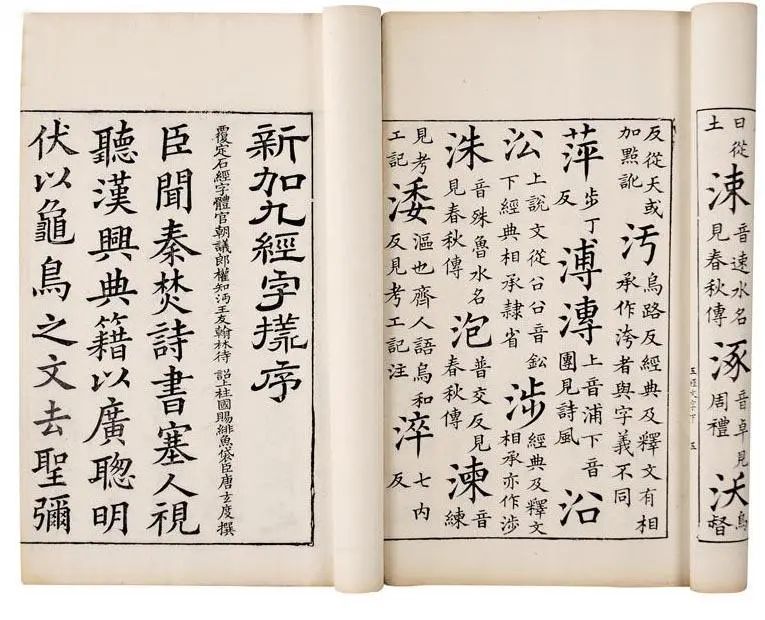 日從土涑音速水名見春秋傳涿音卓見周禮沃烏督
五經文字下 五
反從夭或加點訛汚烏路反經典及釋文有相承作洿者與字義不同
萍步丁反溥漙上音浦下音團見詩風沿
㳂上說文從㕣㕣音鈆下經典相承隸省涉經典及釋文相承亦作涉
洙音殊魯水名見春秋傳泡普交反見春秋傳湅音練
見考工記涹漚也齊人語烏和反見考工記注淬七內反
新加九經字㨾序
覆定石經字體官朝議郎權知沔王友翰林待 詔上柱國賜緋魚袋臣唐玄度撰
臣聞秦焚詩書塞人視
聽漢興典籍以廣聰明
伏以龜鳥之文去聖彌